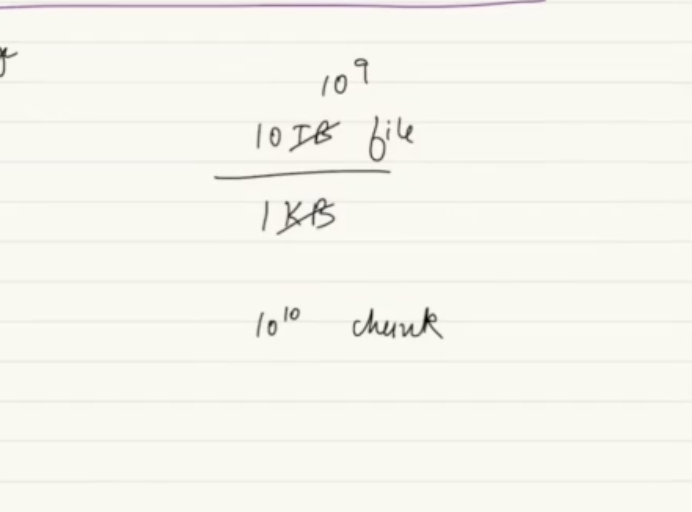 10⁹
10 TB file
1 KB
10¹⁰ chunk